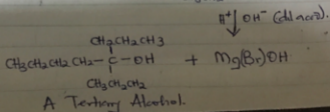 H⁺/ OH⁻ (dil acid).
CH₂CH₂CH3
CH₃CH₂CH₂CH₂-C-OH + Mg(Br)OH
CH₃CH₂CH₂
A Tertiary Alcohol.